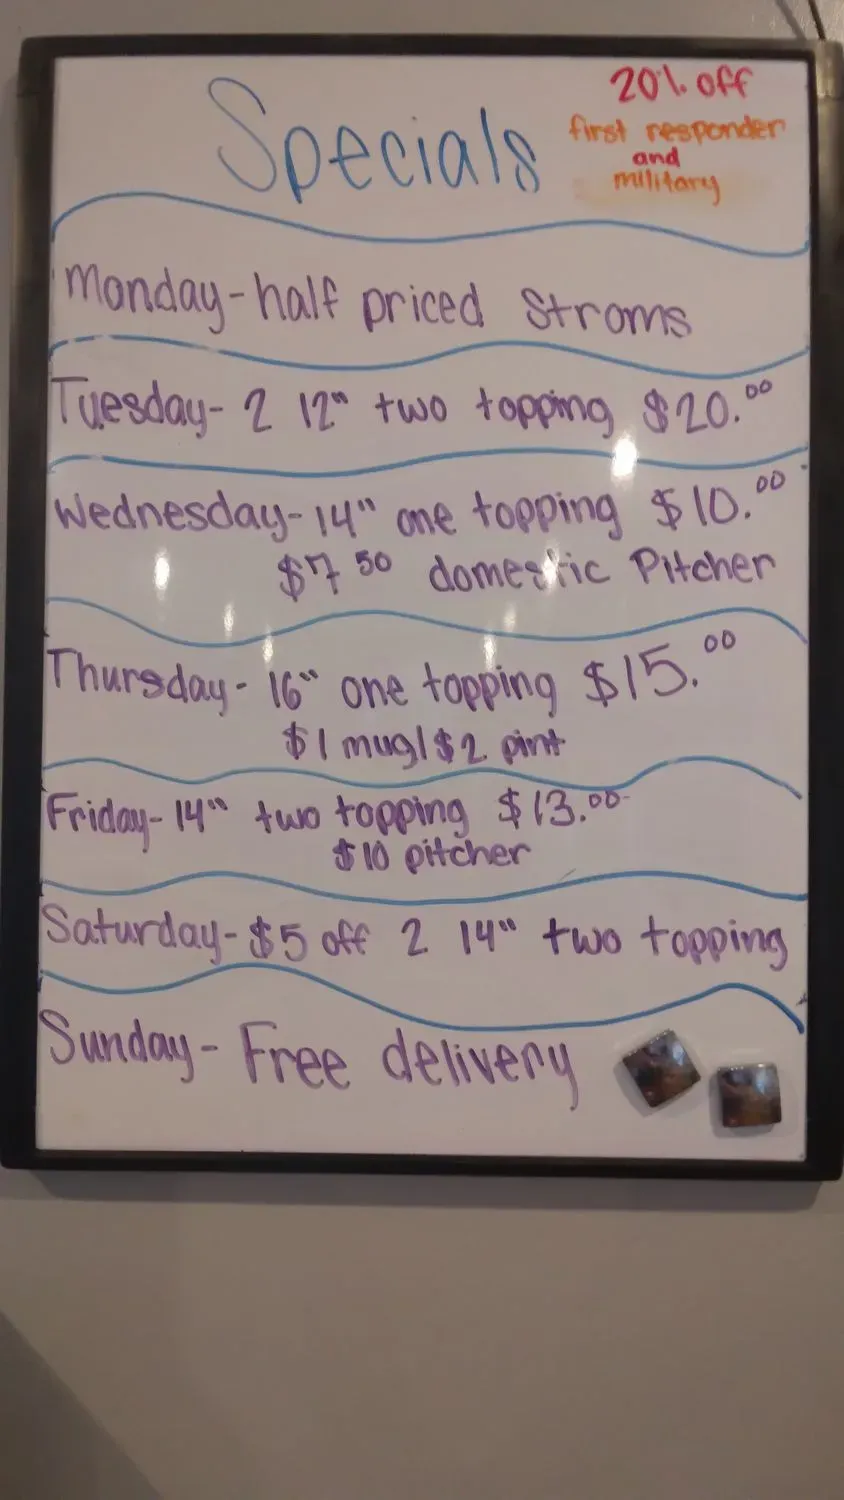 Specials
20% off
first responder
and
military
Monday - half priced Stroms
Tuesday - 2 12" two topping $20.00
Wednesday - 14" one topping $10.00
$7 50 domestic Pitcher
Thursday - 16" one topping $15.00
$1 mug/$2 pint
Friday - 14" two topping $13.00
$10 pitcher
Saturday - $5 off 2 14" two topping
Sunday - Free delivery